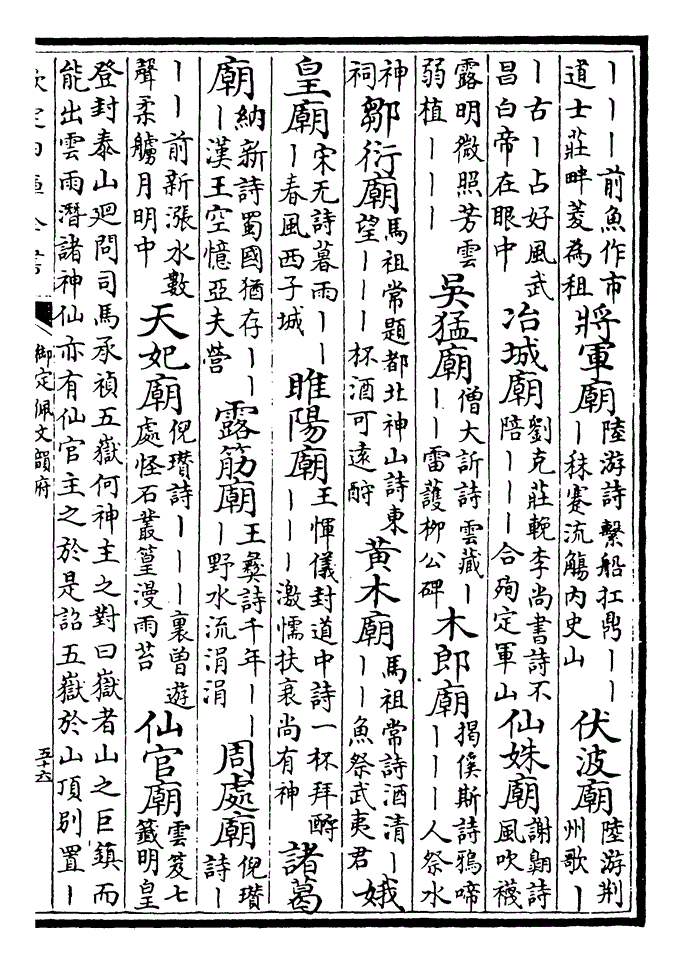 ｜｜｜前魚作市道士莊畔菱為租 將軍廟 陸游詩繫船扛鼎｜｜｜秣蹇流觴内史山 伏波廟 陸游荆州歌｜
｜古｜占好風武昌白帝在眼中 冶城廟 劉克莊輓李尚書詩不陪｜｜｜合殉定軍山 仙姝廟 謝翺詩風吹襪
露明微照芳雲弱植｜｜｜ 吳猛廟 僧大訢詩雲藏｜｜｜雷護柳公碑 木郎廟 揭傒斯詩鴉啼｜｜｜人祭水
神祠 鄒衍廟 馬祖常題都北神山詩東望｜｜｜杯酒可遠酹 黄木廟 馬祖常詩酒清｜｜｜魚祭武夷君 娥
皇廟 宋无詩暮雨｜｜｜春風西子城 睢陽廟 王惲儀封道中詩一杯拜酹｜｜｜激懦扶衰尚有神 諸葛
廟 納新詩蜀國猶存｜｜｜漢王空憶亞夫營 露筋廟 王彝詩千年｜｜｜野水流涓涓 周處廟 倪瓚詩｜
｜｜前新漲水數聲柔艣月明中 天妃廟 倪瓚詩｜｜｜裏曽遊處怪石叢篁漫雨苔 仙官廟 雲笈七籤明皇
登封泰山廻問司馬承禎五嶽何神主之對曰嶽者山之巨鎮而
能出雲雨潛諸神仙亦有仙官主之於是詔五嶽於山頂别置｜
欽定四庫全書
御定佩文韻府
五十六